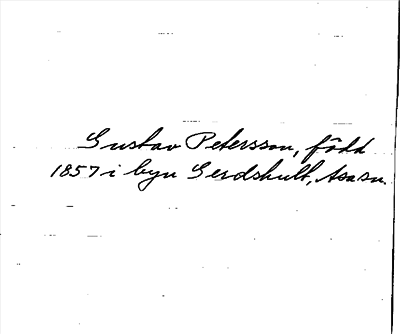 Gustav Petersson, född
1857 i byn Gerdshult, Asasn.